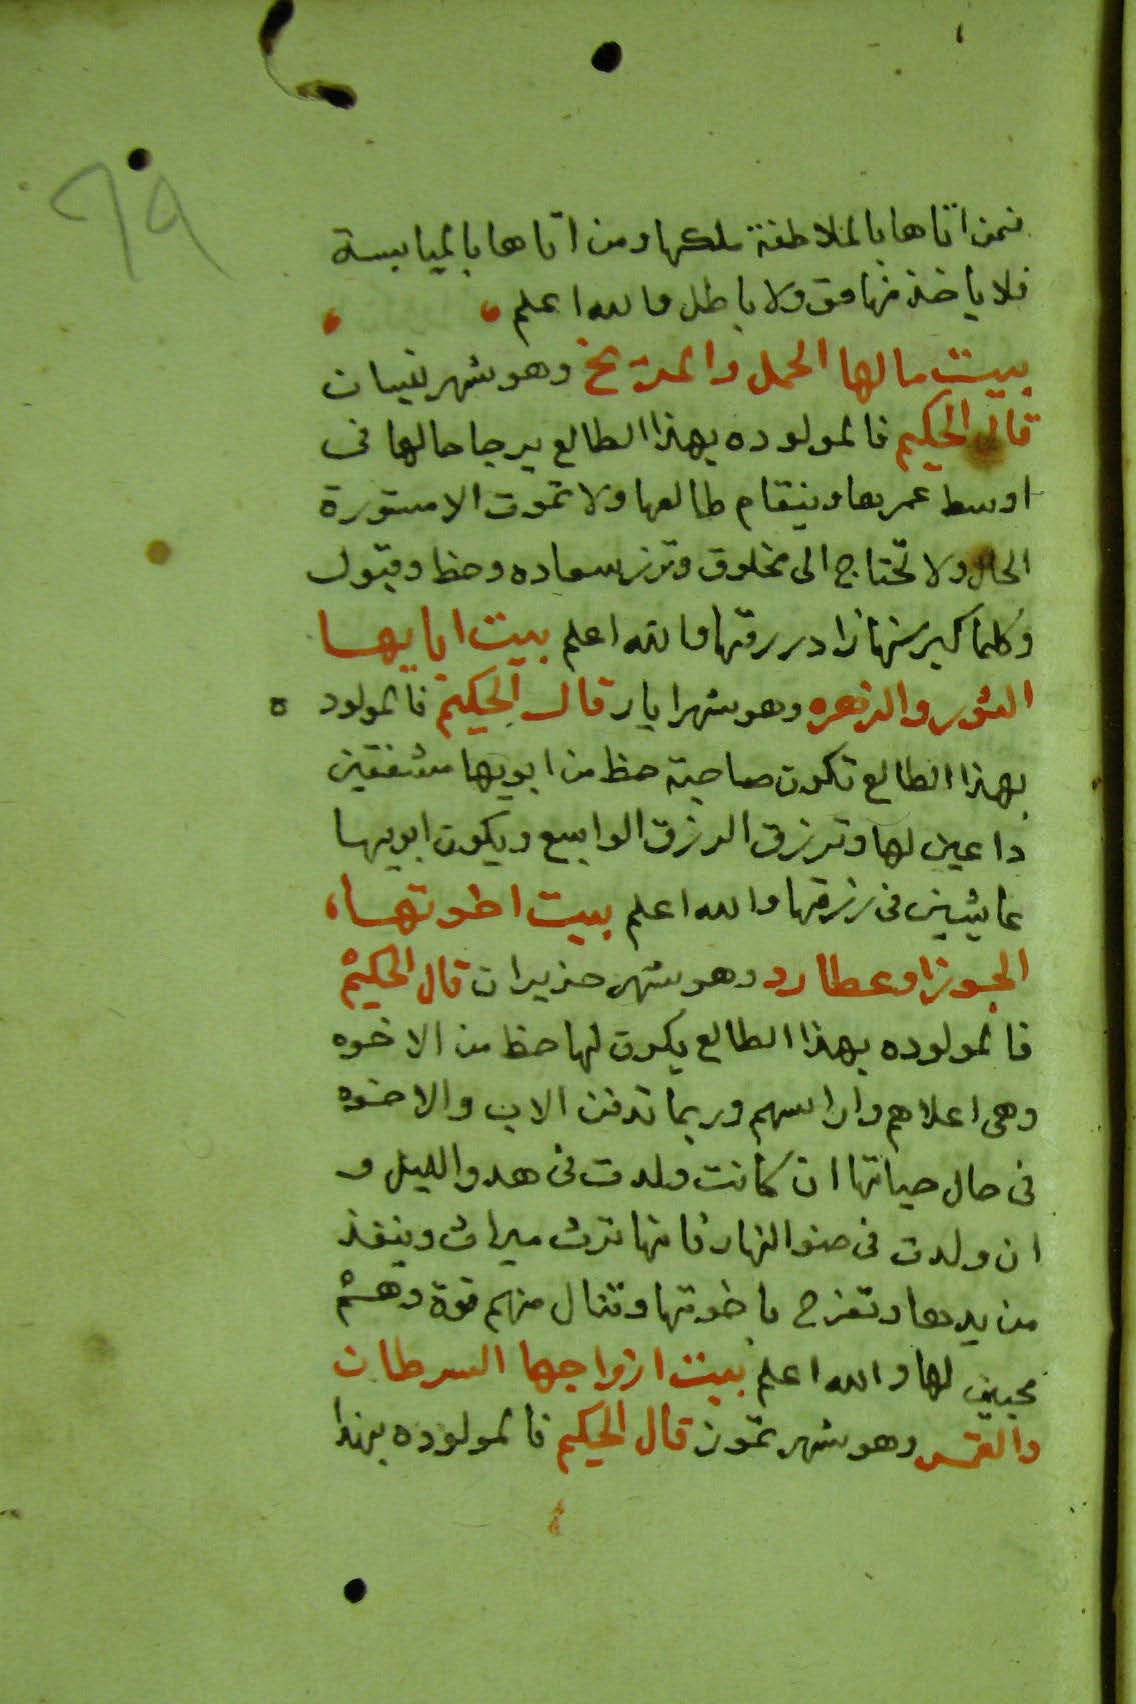 ٦٩
فمن اتاها بالملاطفة ملكها ومن اتاها بالميابسة
فلا ياخذ منها حق ولا باطل والله اعلم
بيت مالها الحمل والمريخ وهو شهر نيسان
قال الحكيم فالمولوده بهذا الطالع يرجا حالها فى
اوسط عمرها وينقام طالعها ولا تموت الا مستورة
الحال ولا تحتاج الى مخلوق وترزق سعاده وحظ وقبول
وكلما كبر سنها زاد رزقها والله اعلم بيت ابايها
الثور والزهره وهو شهر ايار قال الحكيم فالمولود ه
بهذا الطالع تكون صاحبة حظ من ابويها مشفقين
داعين لها وترزق الرزق الواسع ويكون ابويها
عايشين فى رزقها والله اعلم بيت اخوتها
الجوزا وعطارد وهو شهر حزيران قال الحكيم
فالمولوده بهذا الطالع يكون لها حظ من الاخوه
وهى اعلاهم واراسهم وربما تدفن الاب والاخوه
فى حال حياتها ان كانت ولدت فى هدو الليل و
ان ولدت فى ضو النهار فانها ترث ميراث وينفذ
من يدها وتفرح باخوتها وتنال منهم قوة وهم
محبين لها والله اعلم بيت ازواجها السرطان
والقمر وهو شهر تموز قال الحكيم فالمولوده بهذا